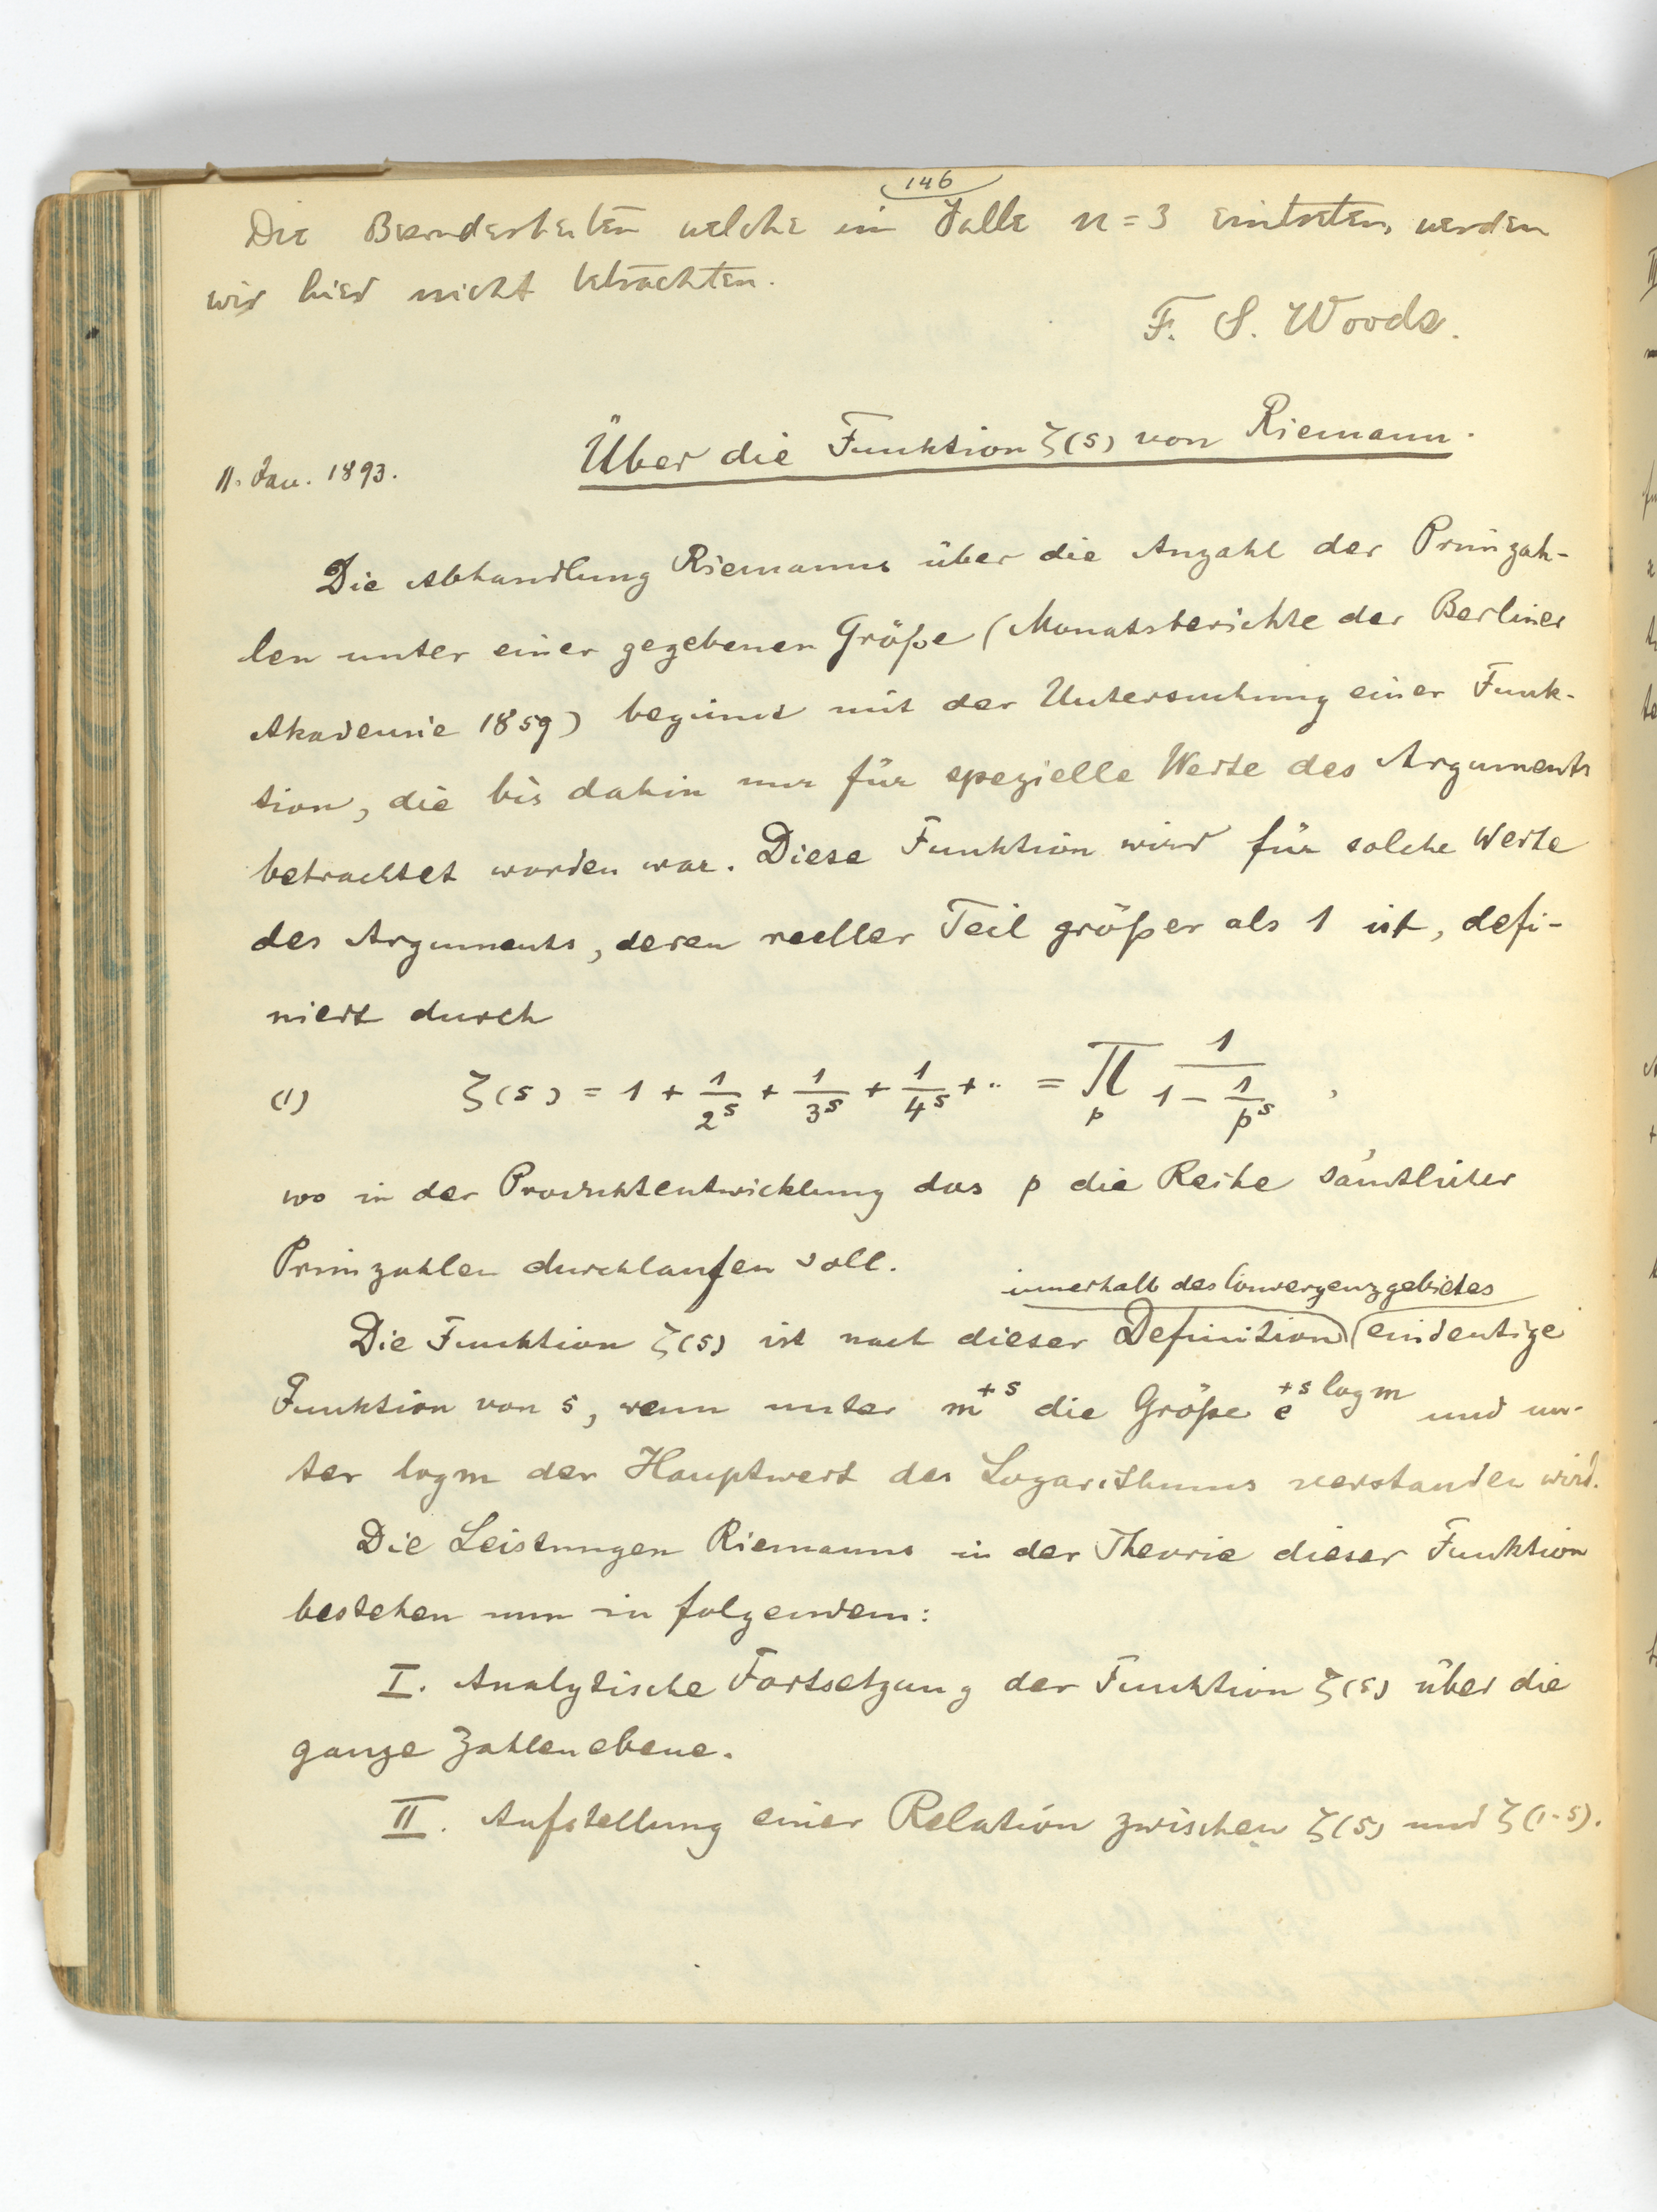 146
Die Besonderheiten welche im Falle n = 3 eintreten, werden
wir hier nicht betrachten.
F. S. Woods.
Über die Funktion ζ(s) von Riemann.
11. Jan. 1893.
Die Abhandlung Riemanns über die Anzahl der Primzah-
len unter einer gegebenen Größe (Monatsberichte der Berliner
Akademie 1859) beginnt mit der Untersuchung einer Funk-
tion, die bis dahin nur für spezielle Werte des Arguments
betrachtet worden war. Diese Funktion wird für solche Werte
des Arguments, deren reeller Teil größer als 1 ist, defi-
niert durch
(1) ζ(s) = 1 + 1/2^s + 1/3^s + 1/4^s + ·· = ∏_p 1/(1 − 1/p^s) ,
wo in der Produktentwicklung das p die Reihe sämtlicher
Primzahlen durchlaufen soll.
innerhalb des Convergenzgebietes
Die Funktion ζ(s) ist nach dieser Definition eindeutige
Funktion von s, wenn unter m^{+s} die Größe e^{+s log m} und un-
ter log m der Hauptwert des Logarithmus verstanden wird.
Die Leistungen Riemanns in der Theorie dieser Funktion
bestehen nun in folgendem:
I. Analytische Fortsetzung der Funktion ζ(s) über die
ganze Zahlenebene.
II. Aufstellung einer Relation zwischen ζ(s) und ζ(1-s).